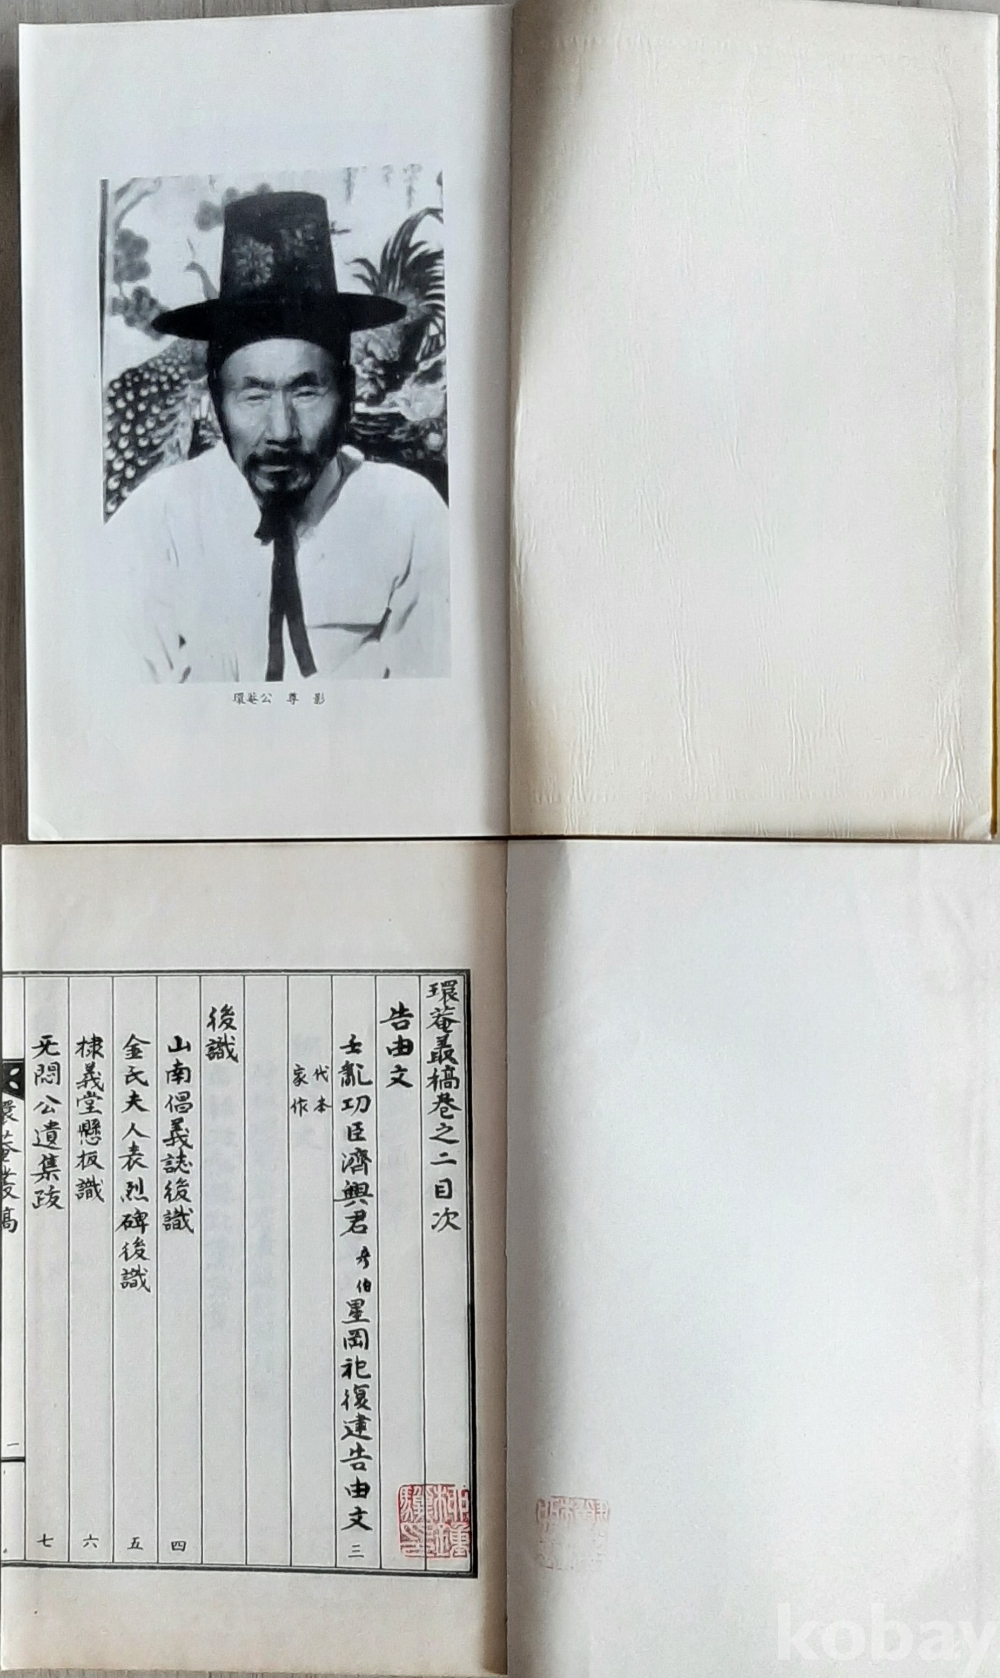 環菴公 尊 影
環菴叢稿卷之二目次
告由文
壬亂功臣濟興君 彦伯 星岡祀復建告由文 三
代本
家作
後識
山南倡義誌後識 四
金氏夫人表烈碑後識 五
棣義堂懸板識 六
无悶公遺集跋 七
環菴叢稿
二
kobay